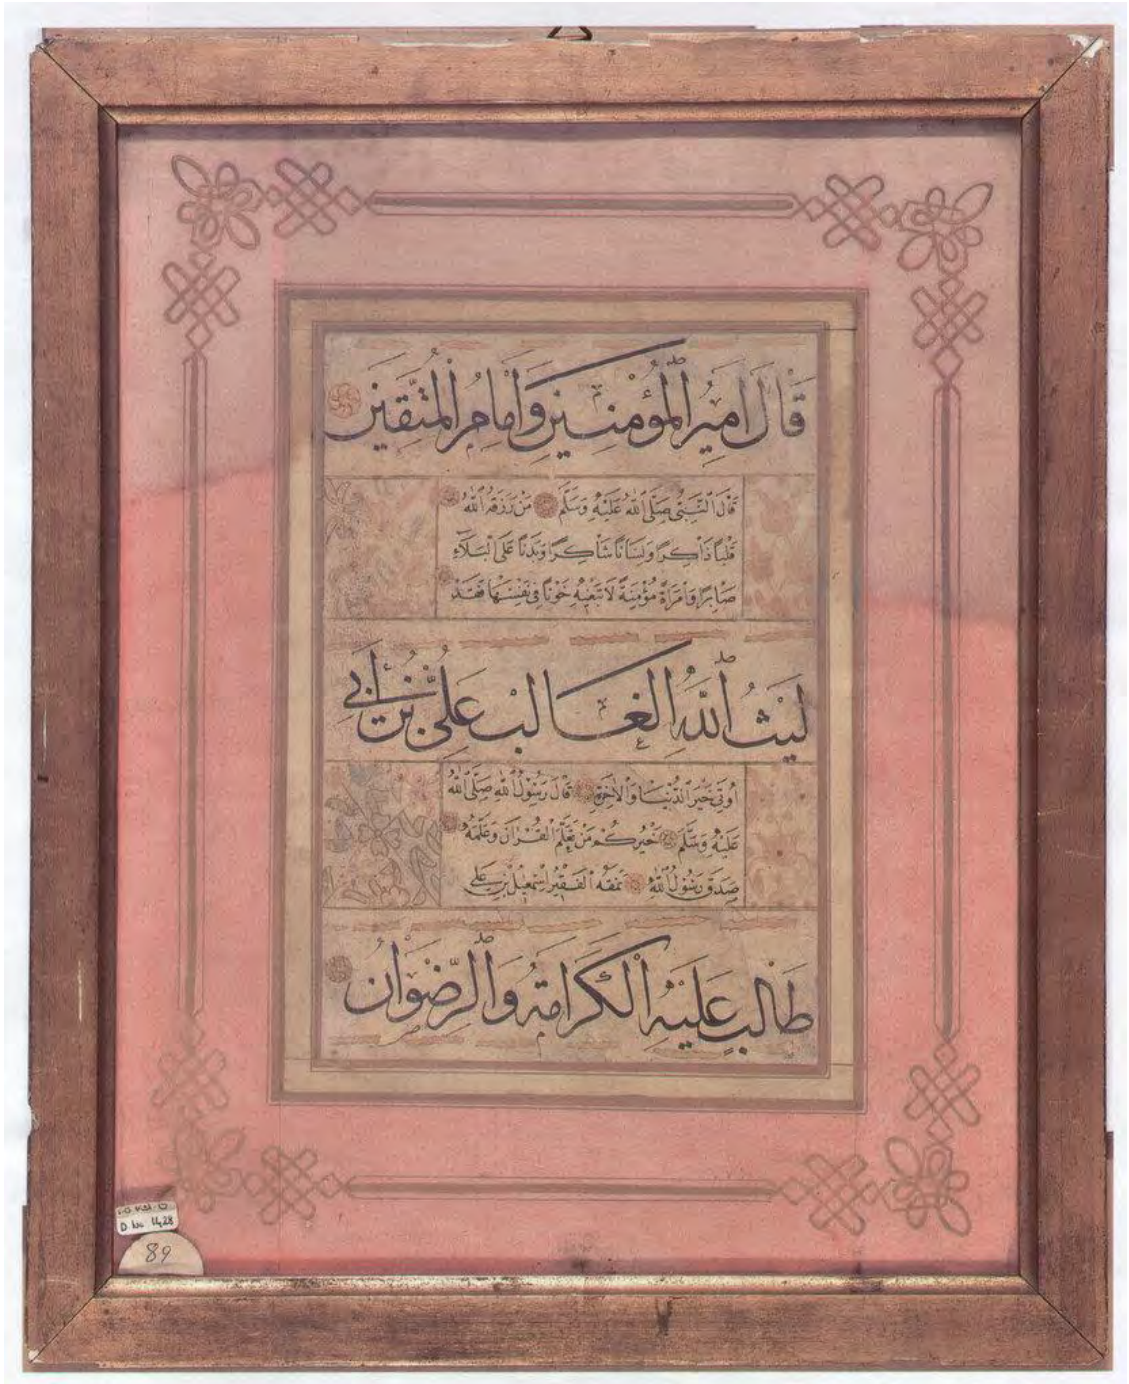 قَالَ اَمِيرُ الْمُؤْمِنِينَ وَاِمَامُ الْمُتَّقِينَ
قَالَ النَّبِيُّ صَلَّى اللهُ عَلَيْهِ وَسَلَّمَ مَنْ رَزَقَهُ اللهُ
قَلْبًا ذَاكِرًا وَلِسَانًا شَاكِرًا وَبَدَنًا عَلَى الْبَلَاءِ
صَابِرًا وَامْرَاَةً مُؤْمِنَةً لَا تَبْغِيهِ خَوْنًا فِي نَفْسِهَا فَقَدْ
لَيْثُ اللهِ الْغَالِبْ عَلِيُّ بْنُ اَبِي
اُوتِيَ خَيْرَ الدُّنْيَا وَالْاٰخِرَةِ قَالَ رَسُولُ اللهِ صَلَّى اللهُ
عَلَيْهِ وَسَلَّمَ خَيْرُكُمْ مَنْ تَعَلَّمَ الْقُرْاٰنَ وَعَلَّمَهُ
صَدَقَ رَسُولُ اللهِ نَمَقَهُ الْفَقِيرُ اِسْمٰعِيلُ بْنُ عَلِي
طَالِبٍ عَلَيْهِ الْكَرَامَةُ وَالرِّضْوَانُ
89